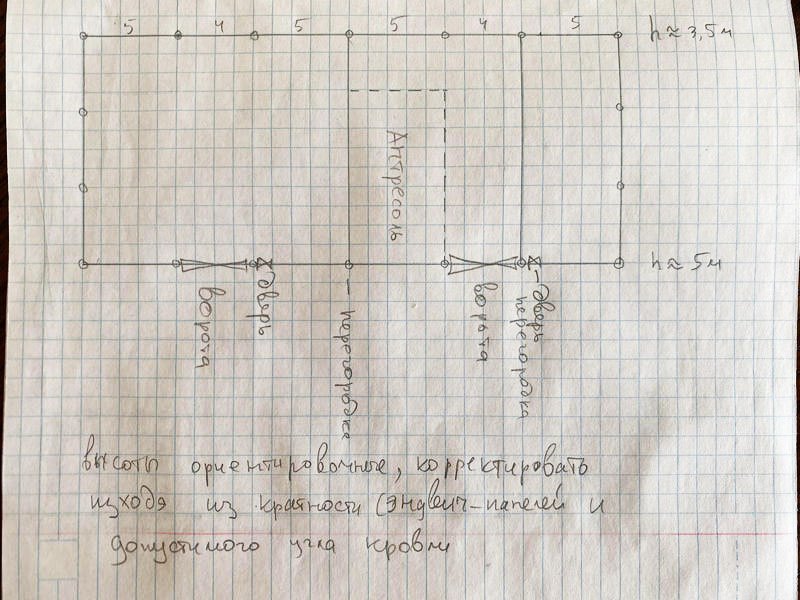 5 4 5 5 4 5 h≈3,5м
Антресоль
h≈5м
ворота
дверь
перегородка
ворота
дверь
перегородка
высоты ориентировочные, корректировать
изходя из кратности сэндвич-панелей и
допустимого угла кровли